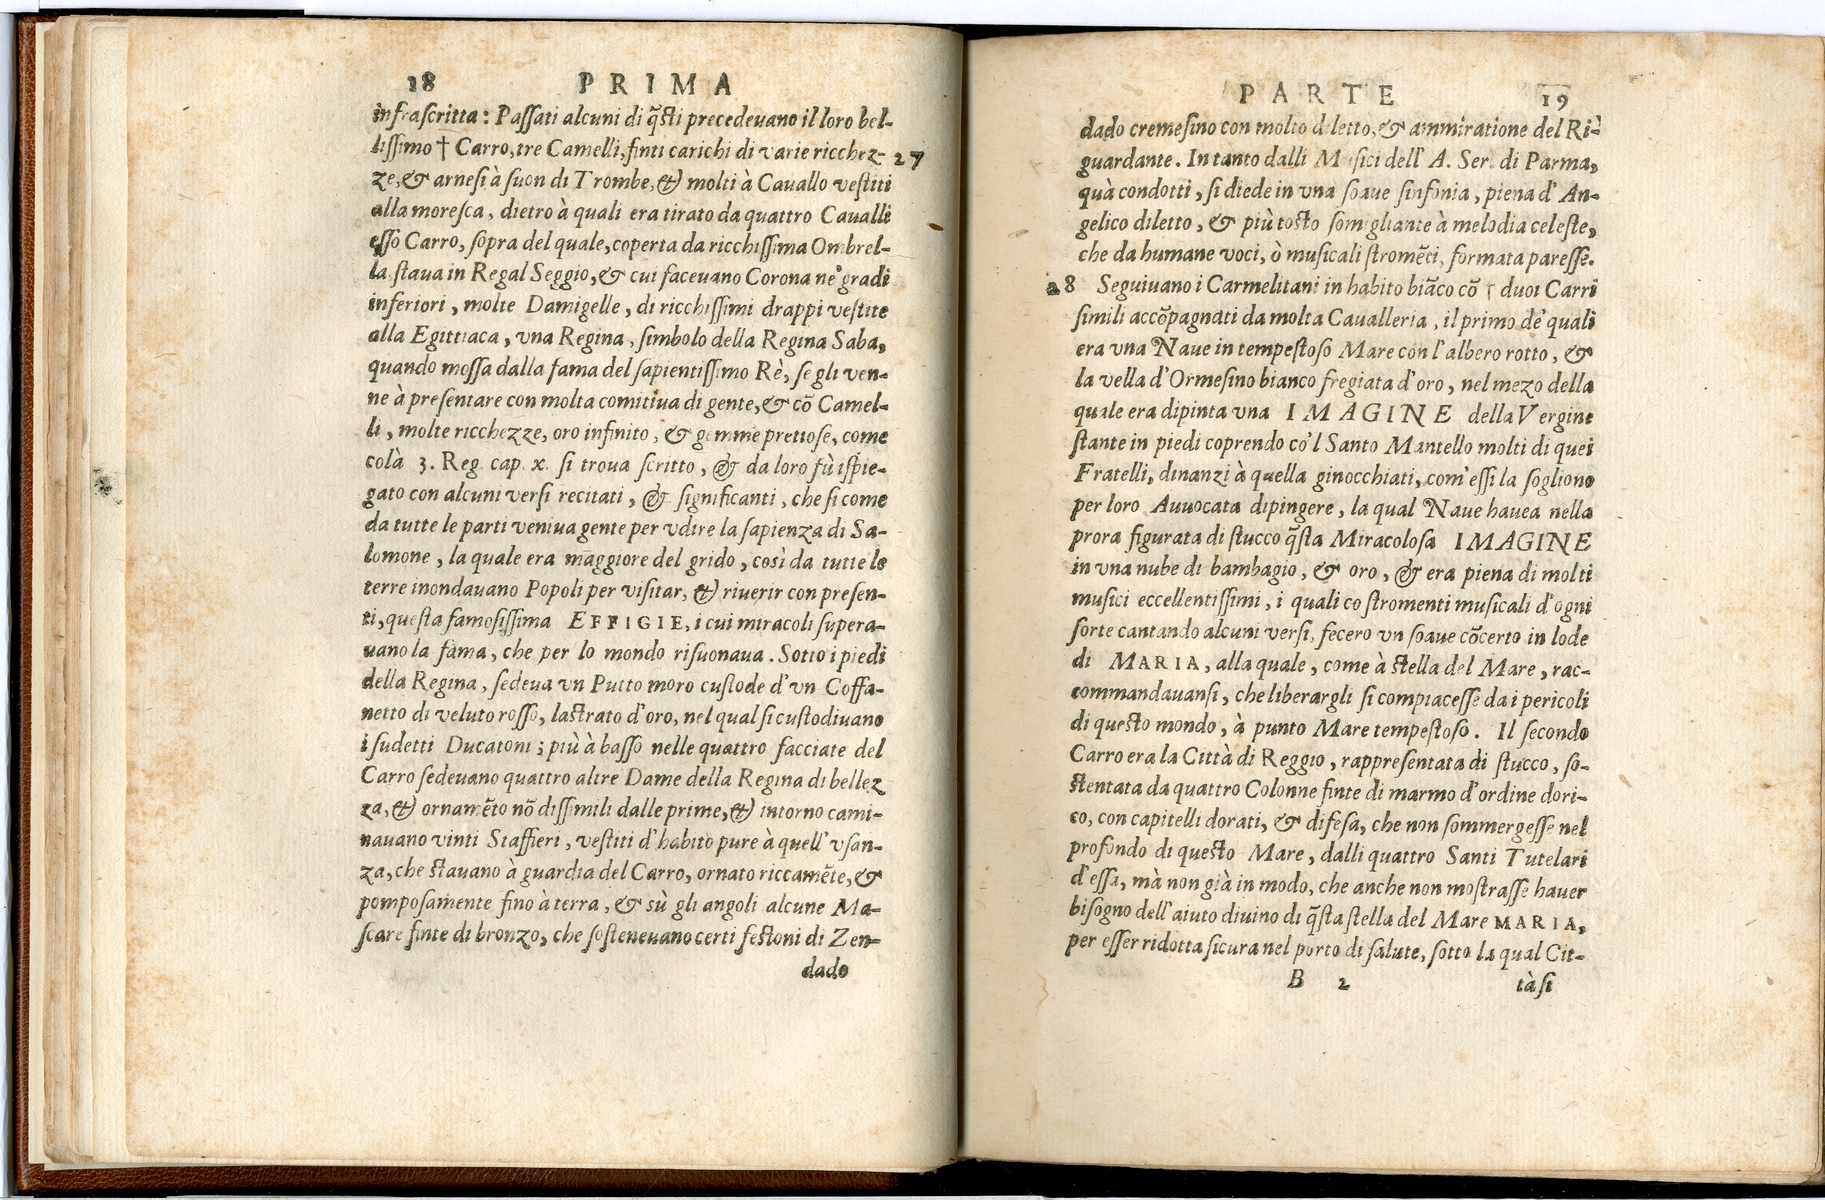 18 PRIMA
infrascritta: Passati alcuni di q̃sti precedeuano il loro bel-
lissimo † Carro, tre Camelli, finti carichi di varie ricchez- 27
ze, & arnesi à suon di Trombe, & molti à Cauallo vestiti
alla moresca, dietro à quali era tirato da quattro Caualli
esso Carro, sopra del quale, coperta da ricchissima Ombrel-
la, staua in Regal Seggio, & cui faceuano Corona ne' gradi
inferiori, molte Damigelle, di ricchissimi drappi vestite
alla Egittiaca, vna Regina, simbolo della Regina Saba,
quando mossa dalla fama del sapientissimo Rè, se gli ven-
ne à presentare con molta comitiua di gente, & cõ Camel-
li, molte ricchezze, oro infinito, & gemme pretiose, come
colà 3. Reg. cap. x. si troua scritto, & da loro fù ispie-
gato con alcuni versi recitati, & significanti, che si come
da tutte le parti veniua gente per vdire la sapienza di Sa-
lomone, la quale era maggiore del grido, così da tutte le
terre inondauano Popoli per visitar, & riuerir con presen-
ti, questa famosissima EFFIGIE, i cui miracoli supera-
uano la fama, che per lo mondo risuonaua. Sotto i piedi
della Regina, sedeua vn Putto moro custode d'vn Coffa-
netto di veluto rosso, lastrato d'oro, nel qual si custodiuano
i sudetti Ducatoni; più à basso nelle quattro facciate del
Carro sedeuano quattro altre Dame della Regina di bellez
za, & ornamẽto nõ dissimili dalle prime, & intorno cami-
nauano vinti Staffieri, vestiti d'habito pure à quell' vsan-
za, che stauano à guardia del Carro, ornato riccamẽte, &
pomposamente fino à terra, & sù gli angoli alcune Ma-
scare finte di bronzo, che sosteneuano certi festoni di Zen-
dado
PARTE 19
dado cremesino con molto diletto, & ammiratione del Ri-
guardante. In tanto dalli Musici dell' A. Ser. di Parma,
quà condotti, si diede in vna soaue sinfonia, piena d'An-
gelico diletto, & più tosto somigliante à melodia celeste,
che da humane voci, ò musicali stromẽti, formata paresse.
28 Seguiuano i Carmelitani in habito biãco cõ † duoi Carri
simili accõpagnati da molta Caualleria, il primo de' quali
era vna Naue in tempestoso Mare con l'albero rotto, &
la vella d'Ormesino bianco fregiata d'oro, nel mezo della
quale era dipinta vna IMAGINE della Vergine
stante in piedi coprendo co'l Santo Mantello molti di quei
Fratelli, dinanzi à quella ginocchiati, com' essi la sogliono
per loro Auuocata dipingere, la qual Naue hauea nella
prora figurata di stucco q̃sta Miracolosa IMAGINE
in vna nube di bambagio, & oro, & era piena di molti
musici eccellentissimi, i quali co stromenti musicali d'ogni
sorte cantando alcuni versi, fecero vn soaue cõcerto in lode
di MARIA, alla quale, come à stella del Mare, rac-
commandauansi, che liberargli si compiacesse da i pericoli
di questo mondo, à punto Mare tempestoso. Il secondo
Carro era la Città di Reggio, rappresentata di stucco, so-
stentata da quattro Colonne finte di marmo d'ordine dori-
co, con capitelli dorati, & difesa, che non sommergesse nel
profondo di questo Mare, dalli quattro Santi Tutelari
d'essa, mà non già in modo, che anche non mostrasse hauer
bisogno dell'aiuto diuino di q̃sta stella del Mare MARIA,
per esser ridotta sicura nel porto di salute, sotto la qual Cit-
B 2 tà si